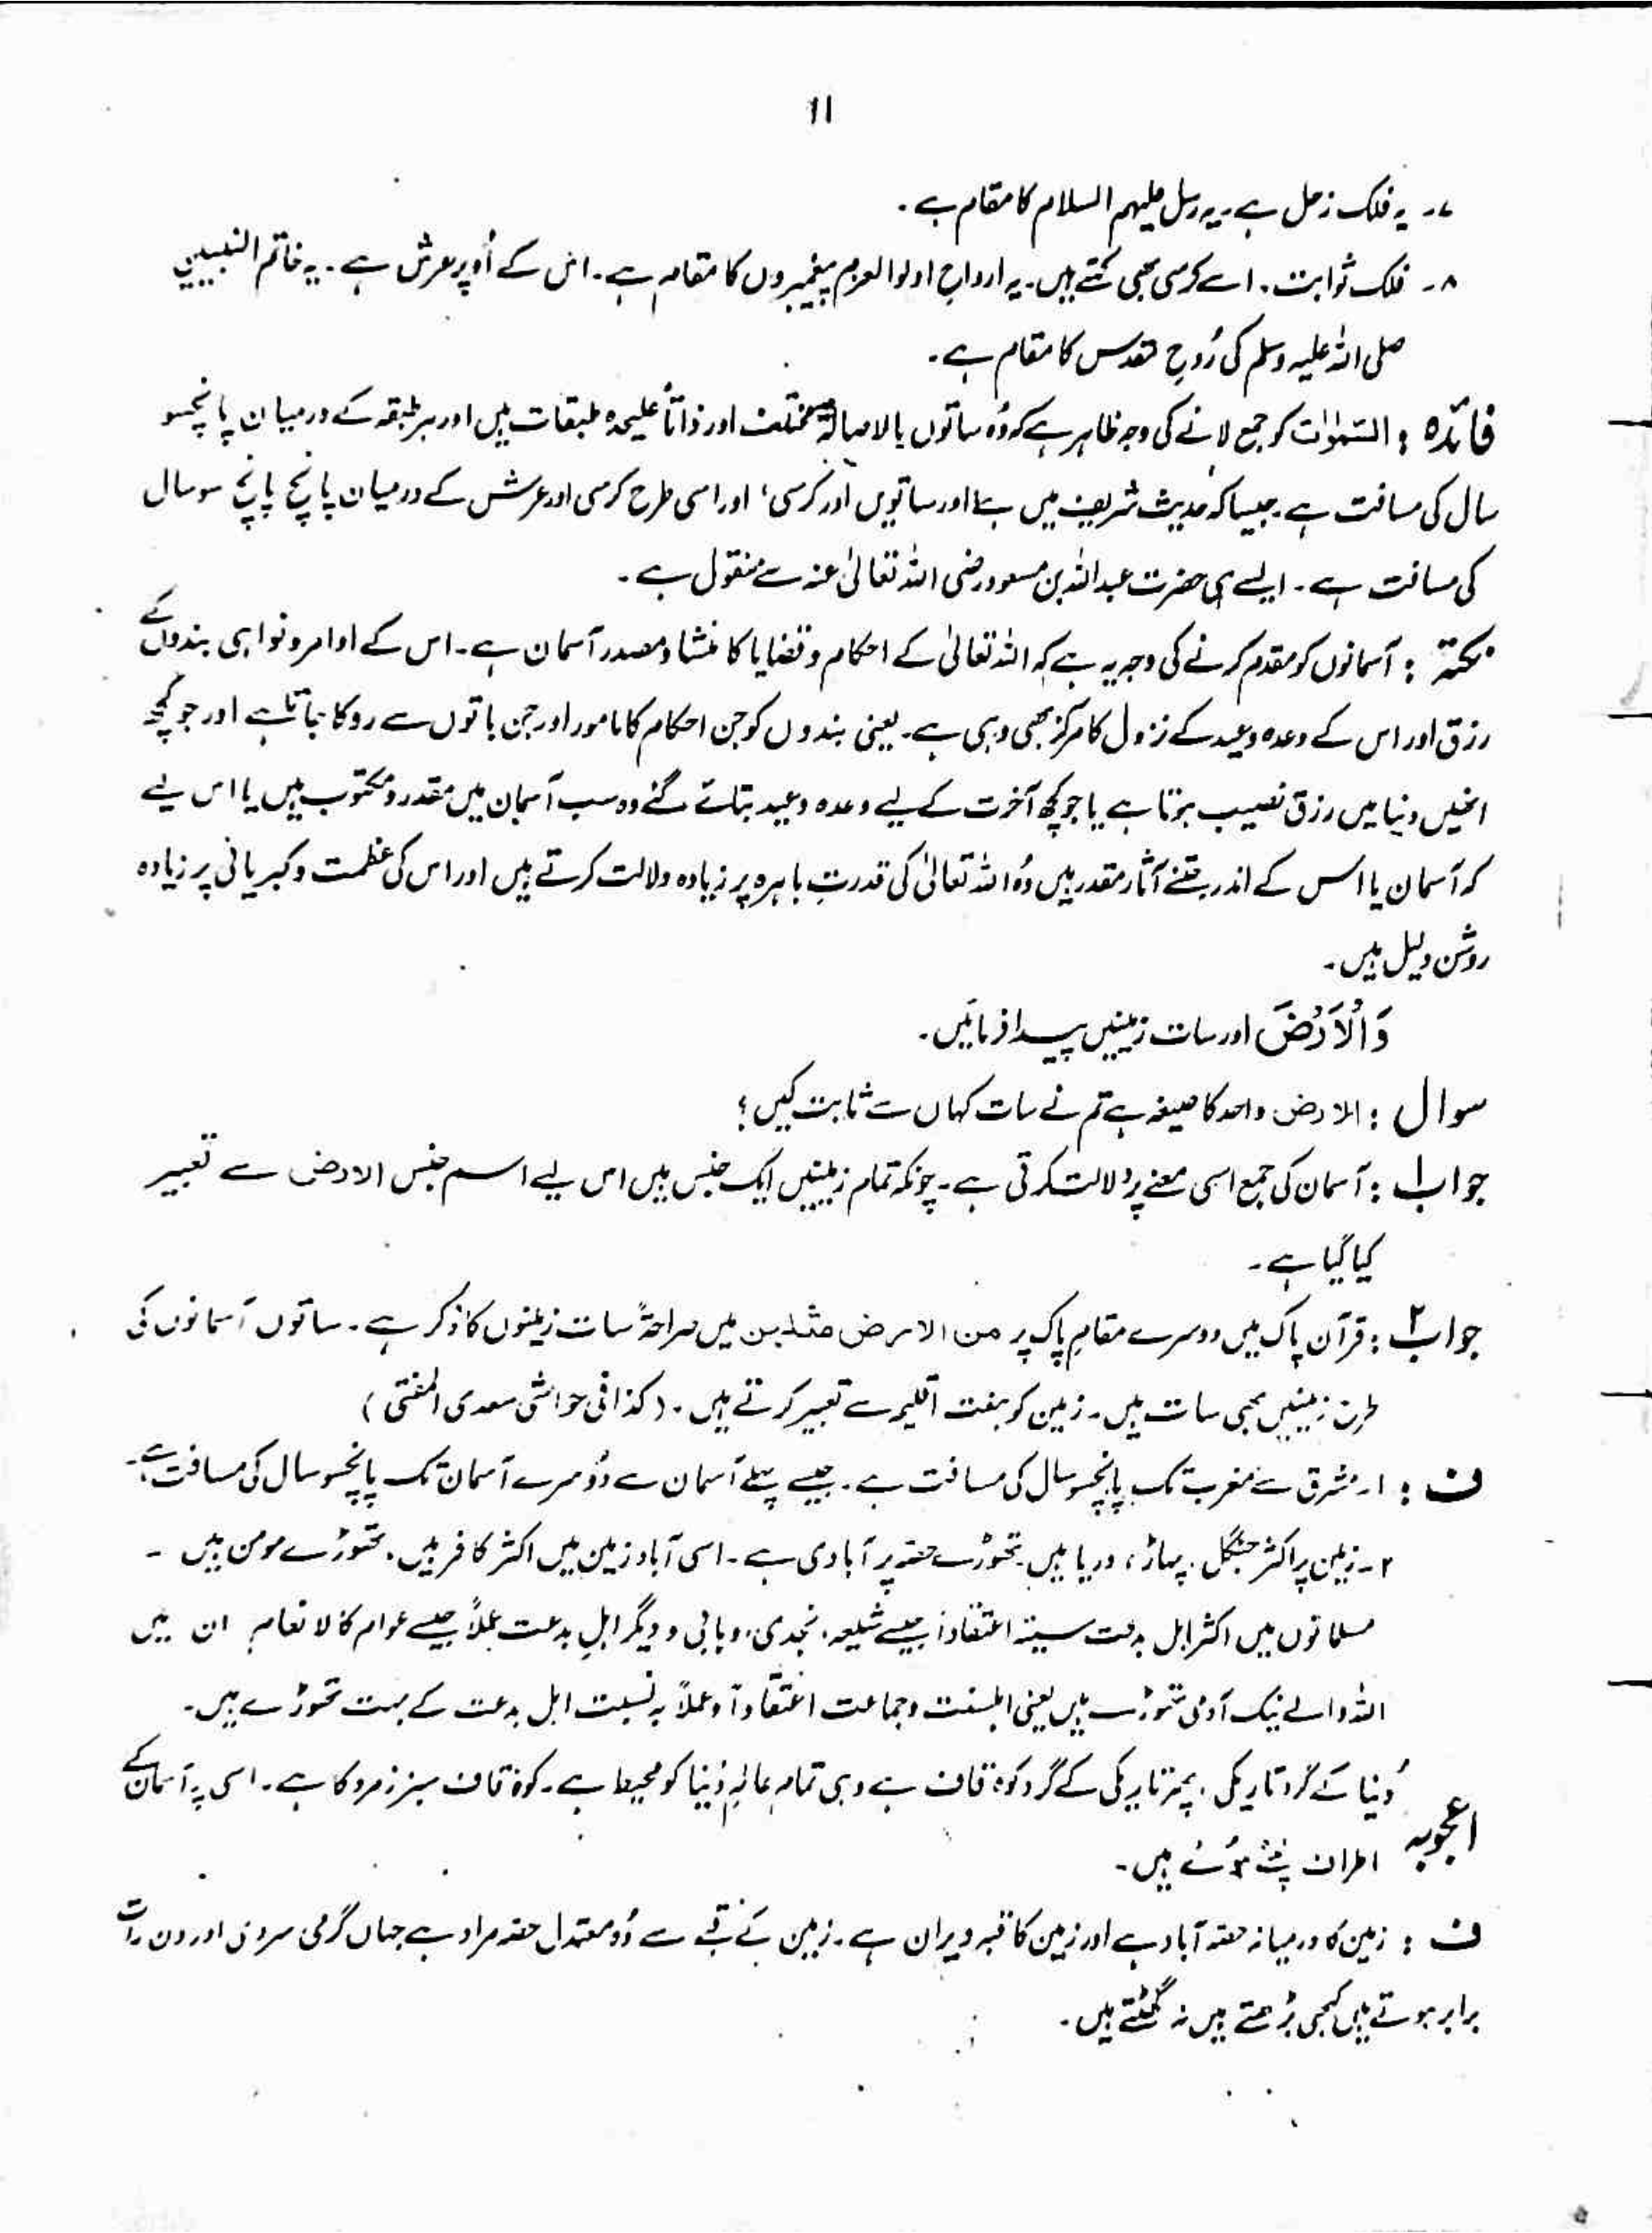 ۱۱
۷۔ یہ فلک زحل ہے۔ یہ رسل علیہم السلام کا مقام ہے۔
۸۔ فلک ثوابت۔ اسے کرسی بھی کہتے ہیں۔ یہ ارواحِ اولوالعزم پیغمبروں کا مقام ہے۔ اس کے اُوپر عرش ہے۔ یہ خاتم النبیین
صلی اللہ علیہ وسلم کی رُوحِ مقدس کا مقام ہے۔
فائدہ : السَّمٰوٰت کو جمع لانے کی وجہ ظاہر ہے کہ وُہ ساتوں بالاصالۃ مختلف اور ذاتاً علیحدہ طبقات ہیں اور ہر طبقہ کے درمیان پانچسو
سال کی مسافت ہے۔ جیسا کہ حدیث شریف میں ہے اور ساتویں اور کرسی، اور اسی طرح کرسی اور عرش کے درمیان پانچ پانچ سو سال
کی مسافت ہے۔ ایسے ہی حضرت عبداللہ بن مسعود رضی اللہ تعالیٰ عنہ سے منقول ہے۔
نکتہ : آسمانوں کو مقدم کرنے کی وجہ یہ ہے کہ اللہ تعالیٰ کے احکام و قضایا کا منشاء و مصدر آسمان ہے۔ اس کے اوامر و نواہی بندوں کے
رزق اور اس کے وعدہ وعید کے نزول کا مرکز بھی وہی ہے۔ یعنی بندوں کو جن احکام کا مامور اور جن باتوں سے روکا جاتا ہے اور جو کچھ
انھیں دنیا میں رزق نصیب ہوتا ہے یا جو کچھ آخرت کے لیے وعدہ وعید بتائے گئے وہ سب آسمان میں مقدر و مکتوب ہیں یا اس لیے
کہ آسمان یا اس کے اندر جتنے آثار مقدر ہیں وُہ اللہ تعالیٰ کی قدرتِ باہرہ پر زیادہ دلالت کرتے ہیں اور اس کی عظمت و کبریائی پر زیادہ
روشن دلیل ہیں۔
وَالْاَرْضَ اور سات زمینیں پیدا فرمائیں۔
سوال : الارض واحد کا صیغہ ہے تم نے سات کہاں سے ثابت کیں؟
جواب۱ : آسمان کی جمع اسی معنے پر دلالت کرتی ہے۔ چونکہ تمام زمینیں ایک جنس ہیں اس لیے اسم جنس الارض سے تعبیر
کیا گیا ہے۔
جواب۲ : قرآن پاک میں دوسرے مقامِ پاک پر من الارض مثلہن میں صراحۃً سات زمینوں کا ذکر ہے۔ ساتوں آسمانوں کی
طرح زمینیں بھی سات ہیں۔ زمین کو ہفت اقلیم سے تعبیر کرتے ہیں۔ (کذا فی حواشی سعدی المفتی)
ف : ۱۔ مشرق سے مغرب تک پانچسو سال کی مسافت ہے۔ جیسے پہلے آسمان سے دُوسرے آسمان تک پانچسو سال کی مسافت ہے۔
۲۔ زمین پر اکثر جنگل، پہاڑ، دریا ہیں۔ تھوڑے حصہ پر آبادی ہے۔ اسی آباد زمین میں اکثر کافر ہیں۔ تھوڑے مومن ہیں ۔
مسلمانوں میں اکثر اہل بدعت سیئہ اعتقاداً جیسے شیعہ، نجدی، وہابی و دیگر اہلِ بدعت عملاً جیسے عوام کالانعام ان میں
اللہ والے نیک آدمی تھوڑے ہیں یعنی اہلسنت وجماعت اعتقاداً و عملاً بہ نسبت اہل بدعت کے بہت تھوڑے ہیں۔
اعجوبہ دُنیا کے گرد تاریکی، پھر تاریکی کے گرد کوہ قاف ہے وہی تمام عالمِ دُنیا کو محیط ہے۔ کوہ قاف سبز زمرد کا ہے۔ اسی پہ آسمان کے
اطراف ہوئے ہیں۔
ف : زمین کا درمیانہ حصہ آباد ہے اور زمین کا قبہ ویران ہے۔ زمین کے قبے سے وُہ معتدل حصہ مراد ہے جہاں گرمی سردی اور دن رات
برابر ہوتے ہیں کبھی بڑھتے ہیں نہ گھٹتے ہیں۔